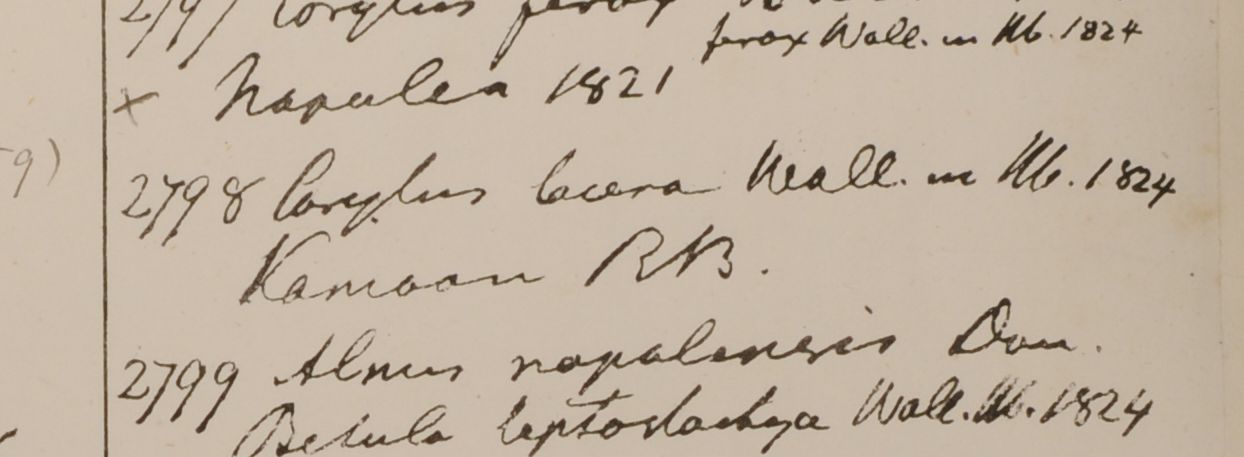 2797 Corylus ferox
ferox Wall. in Hb. 1824
x Napalea 1821
9)
2798 Corylus lacera Wall. in Hb. 1824
Kamoon RB.
2799 Alnus napalensis Don.
Betula leptostachya Wall. Hb. 1824